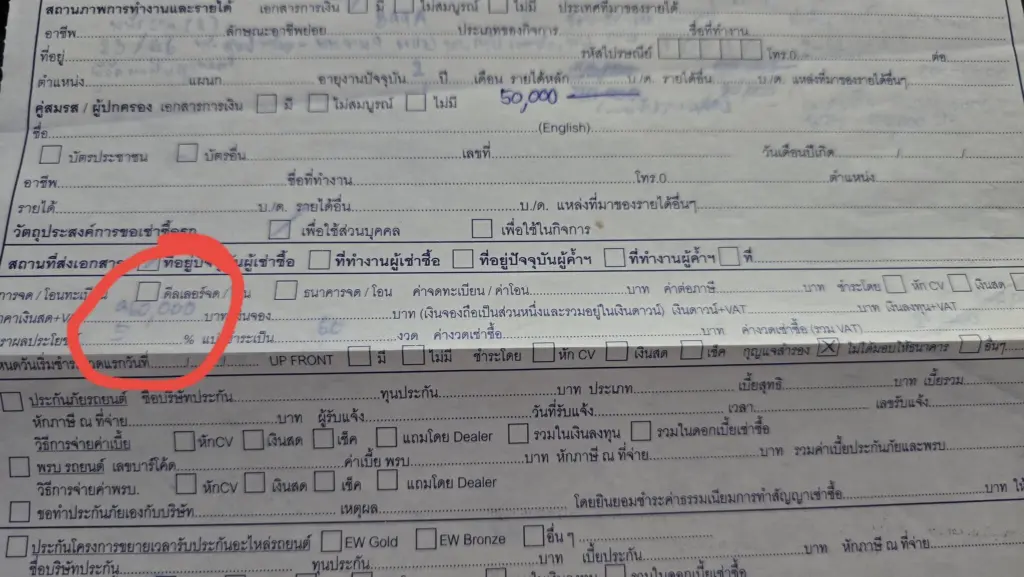 สถานภาพการทำงานและรายได้ เอกสารการเงิน มี ไม่สมบูรณ์ ไม่มี ประเภทที่มาของรายได้
อาชีพ ลักษณะอาชีพย่อย ประเภทของกิจการ ชื่อที่ทำงาน
ที่อยู่ รหัสไปรษณีย์ โทร.0 ต่อ
ตำแหน่ง แผนก อายุงานปัจจุบัน ปี เดือน รายได้หลัก บ./ด. รายได้อื่น บ./ด. แหล่งที่มาของรายได้อื่นๆ
คู่สมรส / ผู้ปกครอง เอกสารการเงิน มี ไม่สมบูรณ์ ไม่มี 50,000
ชื่อ (English)
บัตรประชาชน บัตรอื่น เลขที่ วันเดือนปีเกิด / /
อาชีพ ชื่อที่ทำงาน โทร.0 ตำแหน่ง
รายได้ บ./ด. รายได้อื่น บ./ด. แหล่งที่มาของรายได้อื่นๆ
วัตถุประสงค์การขอเช่าซื้อรถ เพื่อใช้ส่วนบุคคล เพื่อใช้ในกิจการ
สถานที่ส่งเอกสาร ที่อยู่ปัจจุบันผู้เช่าซื้อ ที่ทำงานผู้เช่าซื้อ ที่อยู่ปัจจุบันผู้ค้ำฯ ที่ทำงานผู้ค้ำฯ ที่
การจด / โอนทะเบียน ดีลเลอร์จด / ธนาคารจด / โอน ค่าจดทะเบียน / ค่าโอน บาท ค่าต่อภาษี บาท ชำระโดย หัก CV เงินสด
คาเงินสด+VAT บาท เงินจอง บาท (เงินจองถือเป็นส่วนหนึ่งและรวมอยู่ในเงินดาวน์) เงินดาวน์+VAT บาท เงินลงทุน+VAT
ราผลประโยช 5 % แบ่งชำระเป็น 60 งวด ค่างวดเช่าซื้อ บาท ค่างวดเช่าซื้อ (รวม VAT)
หนดวันเริ่มชำระงวดแรกวันที่ / / UP FRONT มี ไม่มี ชำระโดย หัก CV เงินสด เช็ค กุญแจสำรอง ไม่ได้มอบให้ธนาคาร อื่นๆ
ประกันภัยรถยนต์ ชื่อบริษัทประกัน ทุนประกัน บาท ประเภท เบี้ยสุทธิ บาท เบี้ยรวม
หักภาษี ณ ที่จ่าย บาท ผู้รับแจ้ง วันที่รับแจ้ง เวลา เลขรับแจ้ง
วิธีการจ่ายค่าเบี้ย หักCV เงินสด เช็ค แถมโดย Dealer รวมในเงินลงทุน รวมในดอกเบี้ยเช่าซื้อ
พรบ รถยนต์ เลขบาร์โค้ด ค่าเบี้ย พรบ บาท หักภาษี ณ ที่จ่าย บาท รวมค่าเบี้ยประกันภัยและพรบ.
วิธีการจ่ายค่าพรบ. หักCV เงินสด เช็ค แถมโดย Dealer
ขอทำประกันภัยเองกับบริษัท เหตุผล โดยยินยอมชำระค่าธรรมเนียมการทำสัญญาเช่าซื้อ บาท
ประกันโครงการขยายเวลารับประกันอะไหล่รถยนต์ EW Gold EW Bronze อื่น ๆ
ชื่อบริษัทประกัน ทุนประกัน บาท เบี้ยประกัน บาท หักภาษี ณ ที่จ่าย